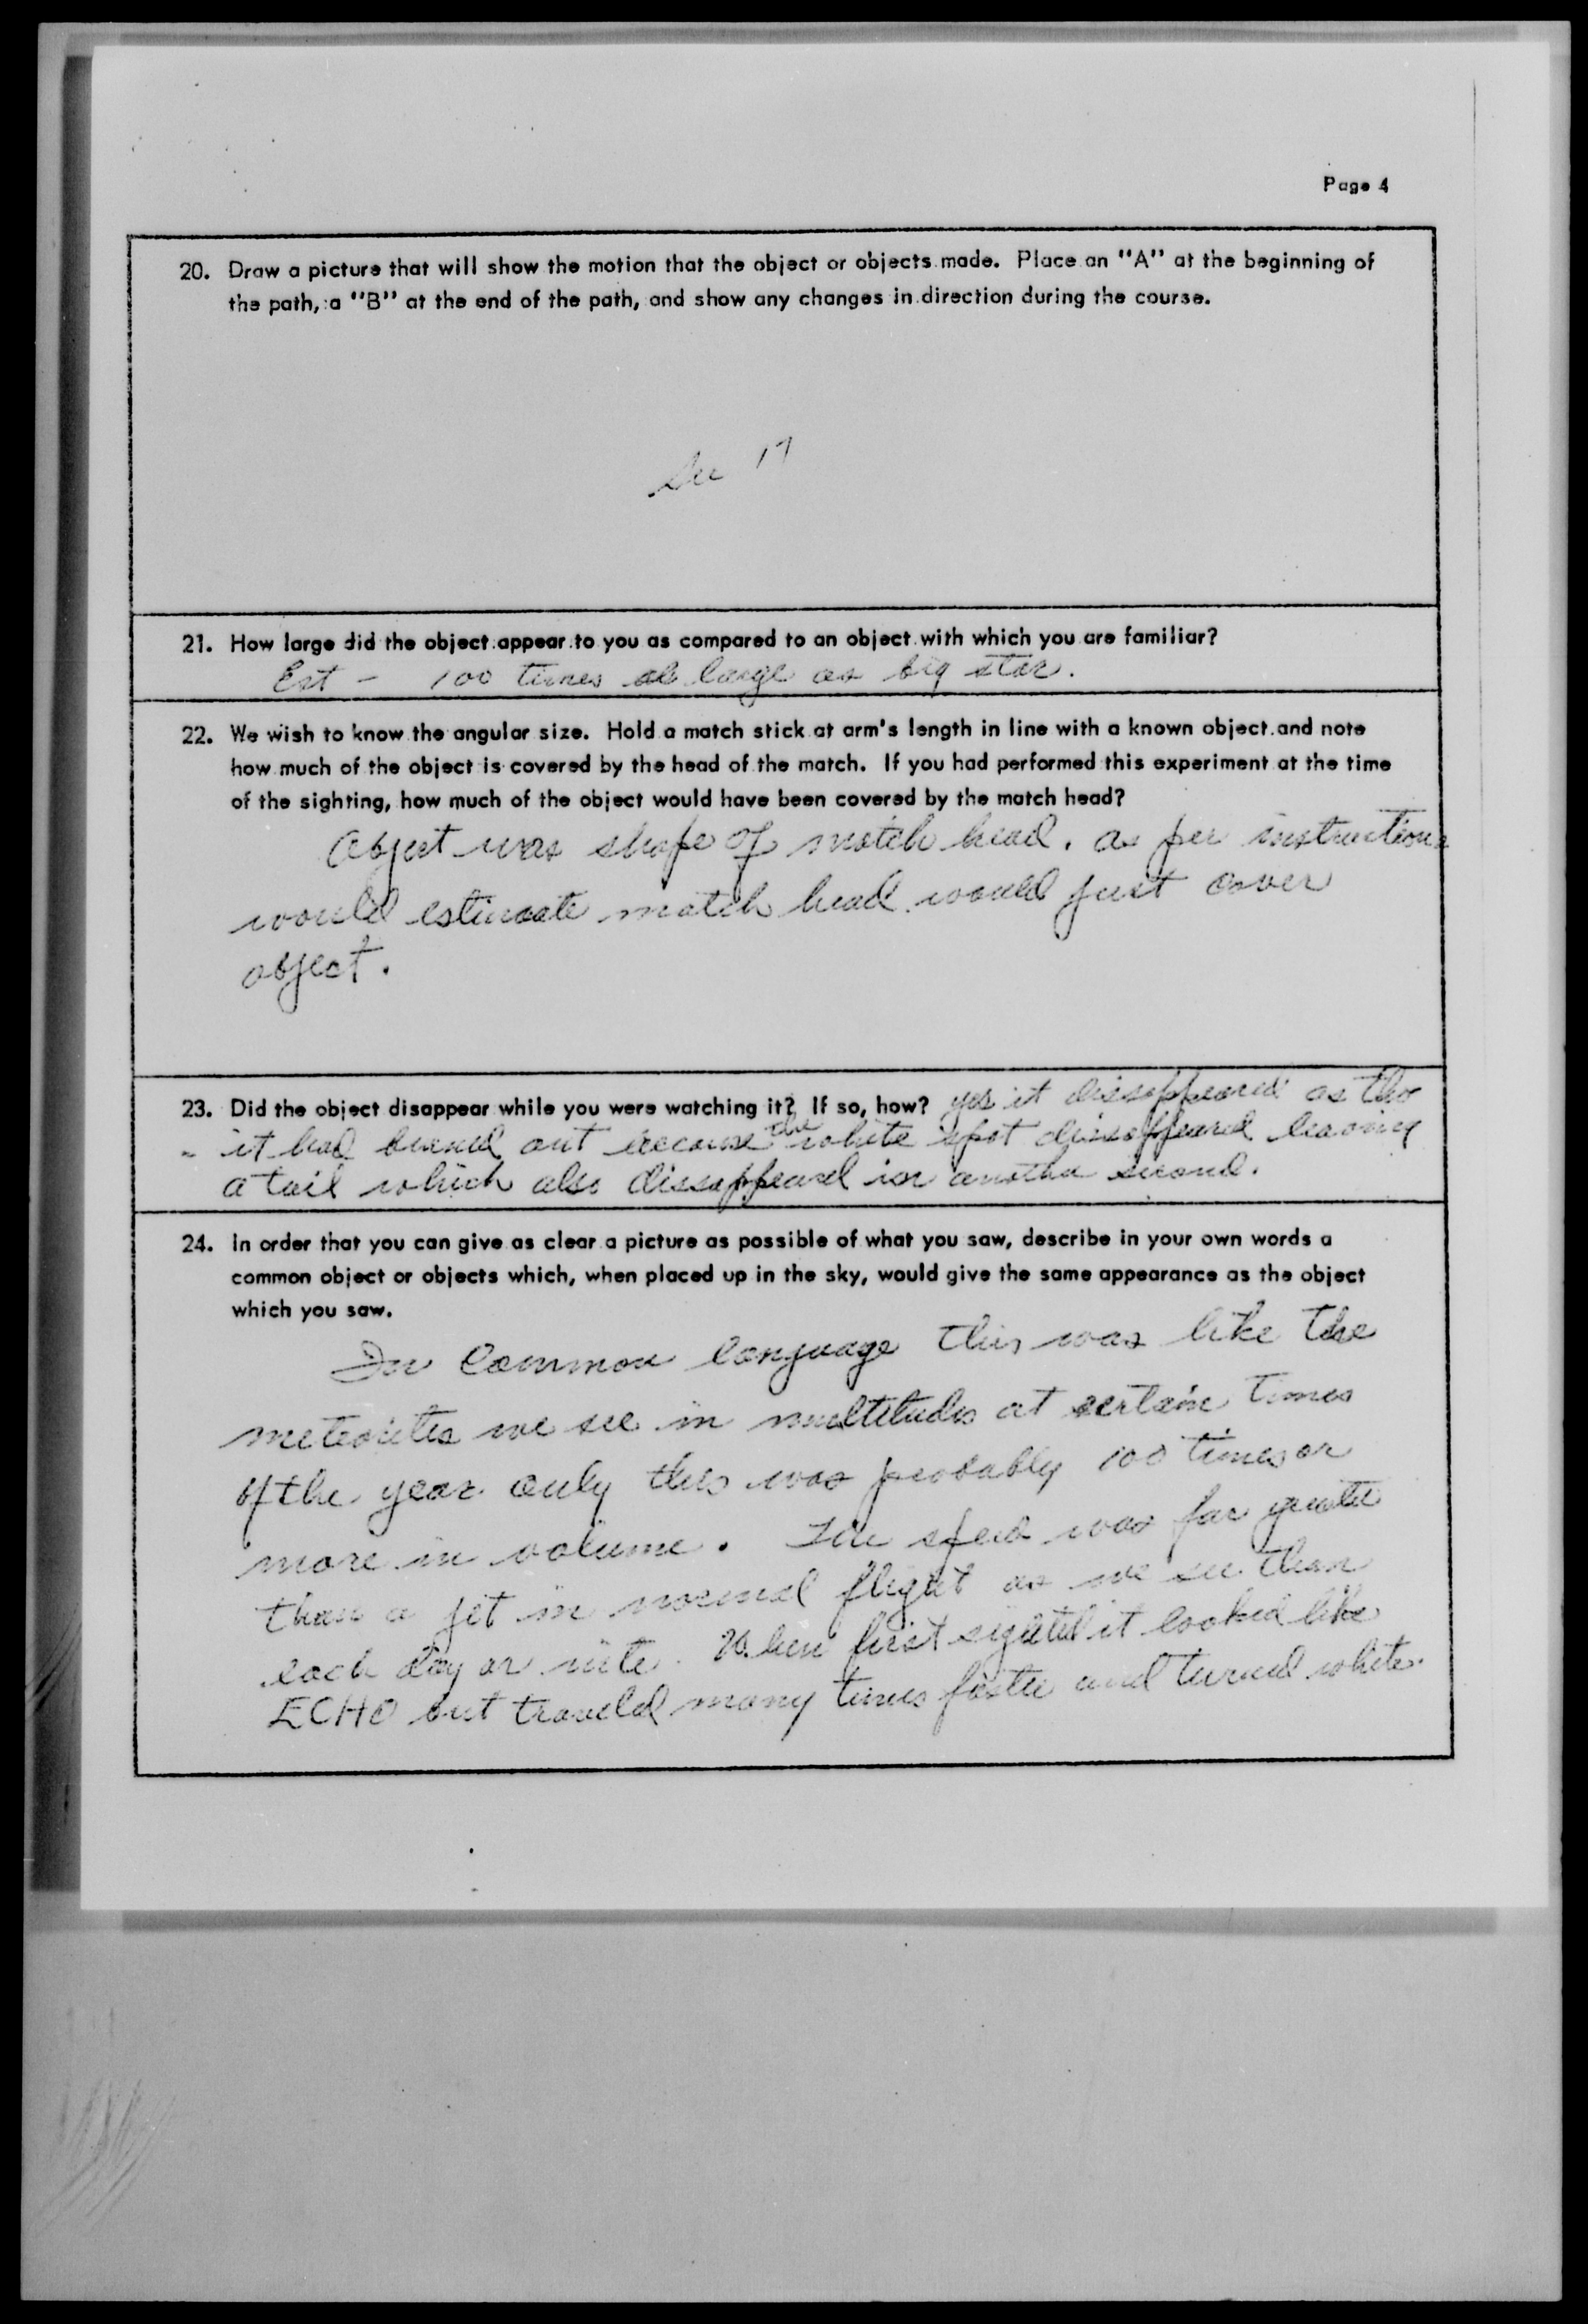 Page 4
20. Draw a picture that will show the motion that the object or objects made. Place an "A" at the beginning of
the path, a "B" at the end of the path, and show any changes in direction during the course.
See 17
21. How large did the object appear to you as compared to an object with which you are familiar?
Est - 100 times as large as big star.
22. We wish to know the angular size. Hold a match stick at arm's length in line with a known object and note
how much of the object is covered by the head of the match. If you had performed this experiment at the time
of the sighting, how much of the object would have been covered by the match head?
Object was shape of match head. as per instructions
would estimate match head would just cover
object.
23. Did the object disappear while you were watching it? If so, how? yes it dissappeared as tho
it had burned out because the white spot dissappeared leaving
a tail which also dissappeared in another second.
24. In order that you can give as clear a picture as possible of what you saw, describe in your own words a
common object or objects which, when placed up in the sky, would give the same appearance as the object
which you saw.
In Common language this was like the
meteorites we see in multitudes at certain times
of the year only this was probably 100 times or
more in volume. The speed was far greater
than a jet in normal flight as we see them
each day or nite. When first sighted it looked like
ECHO but traveled many times faster and turned white.